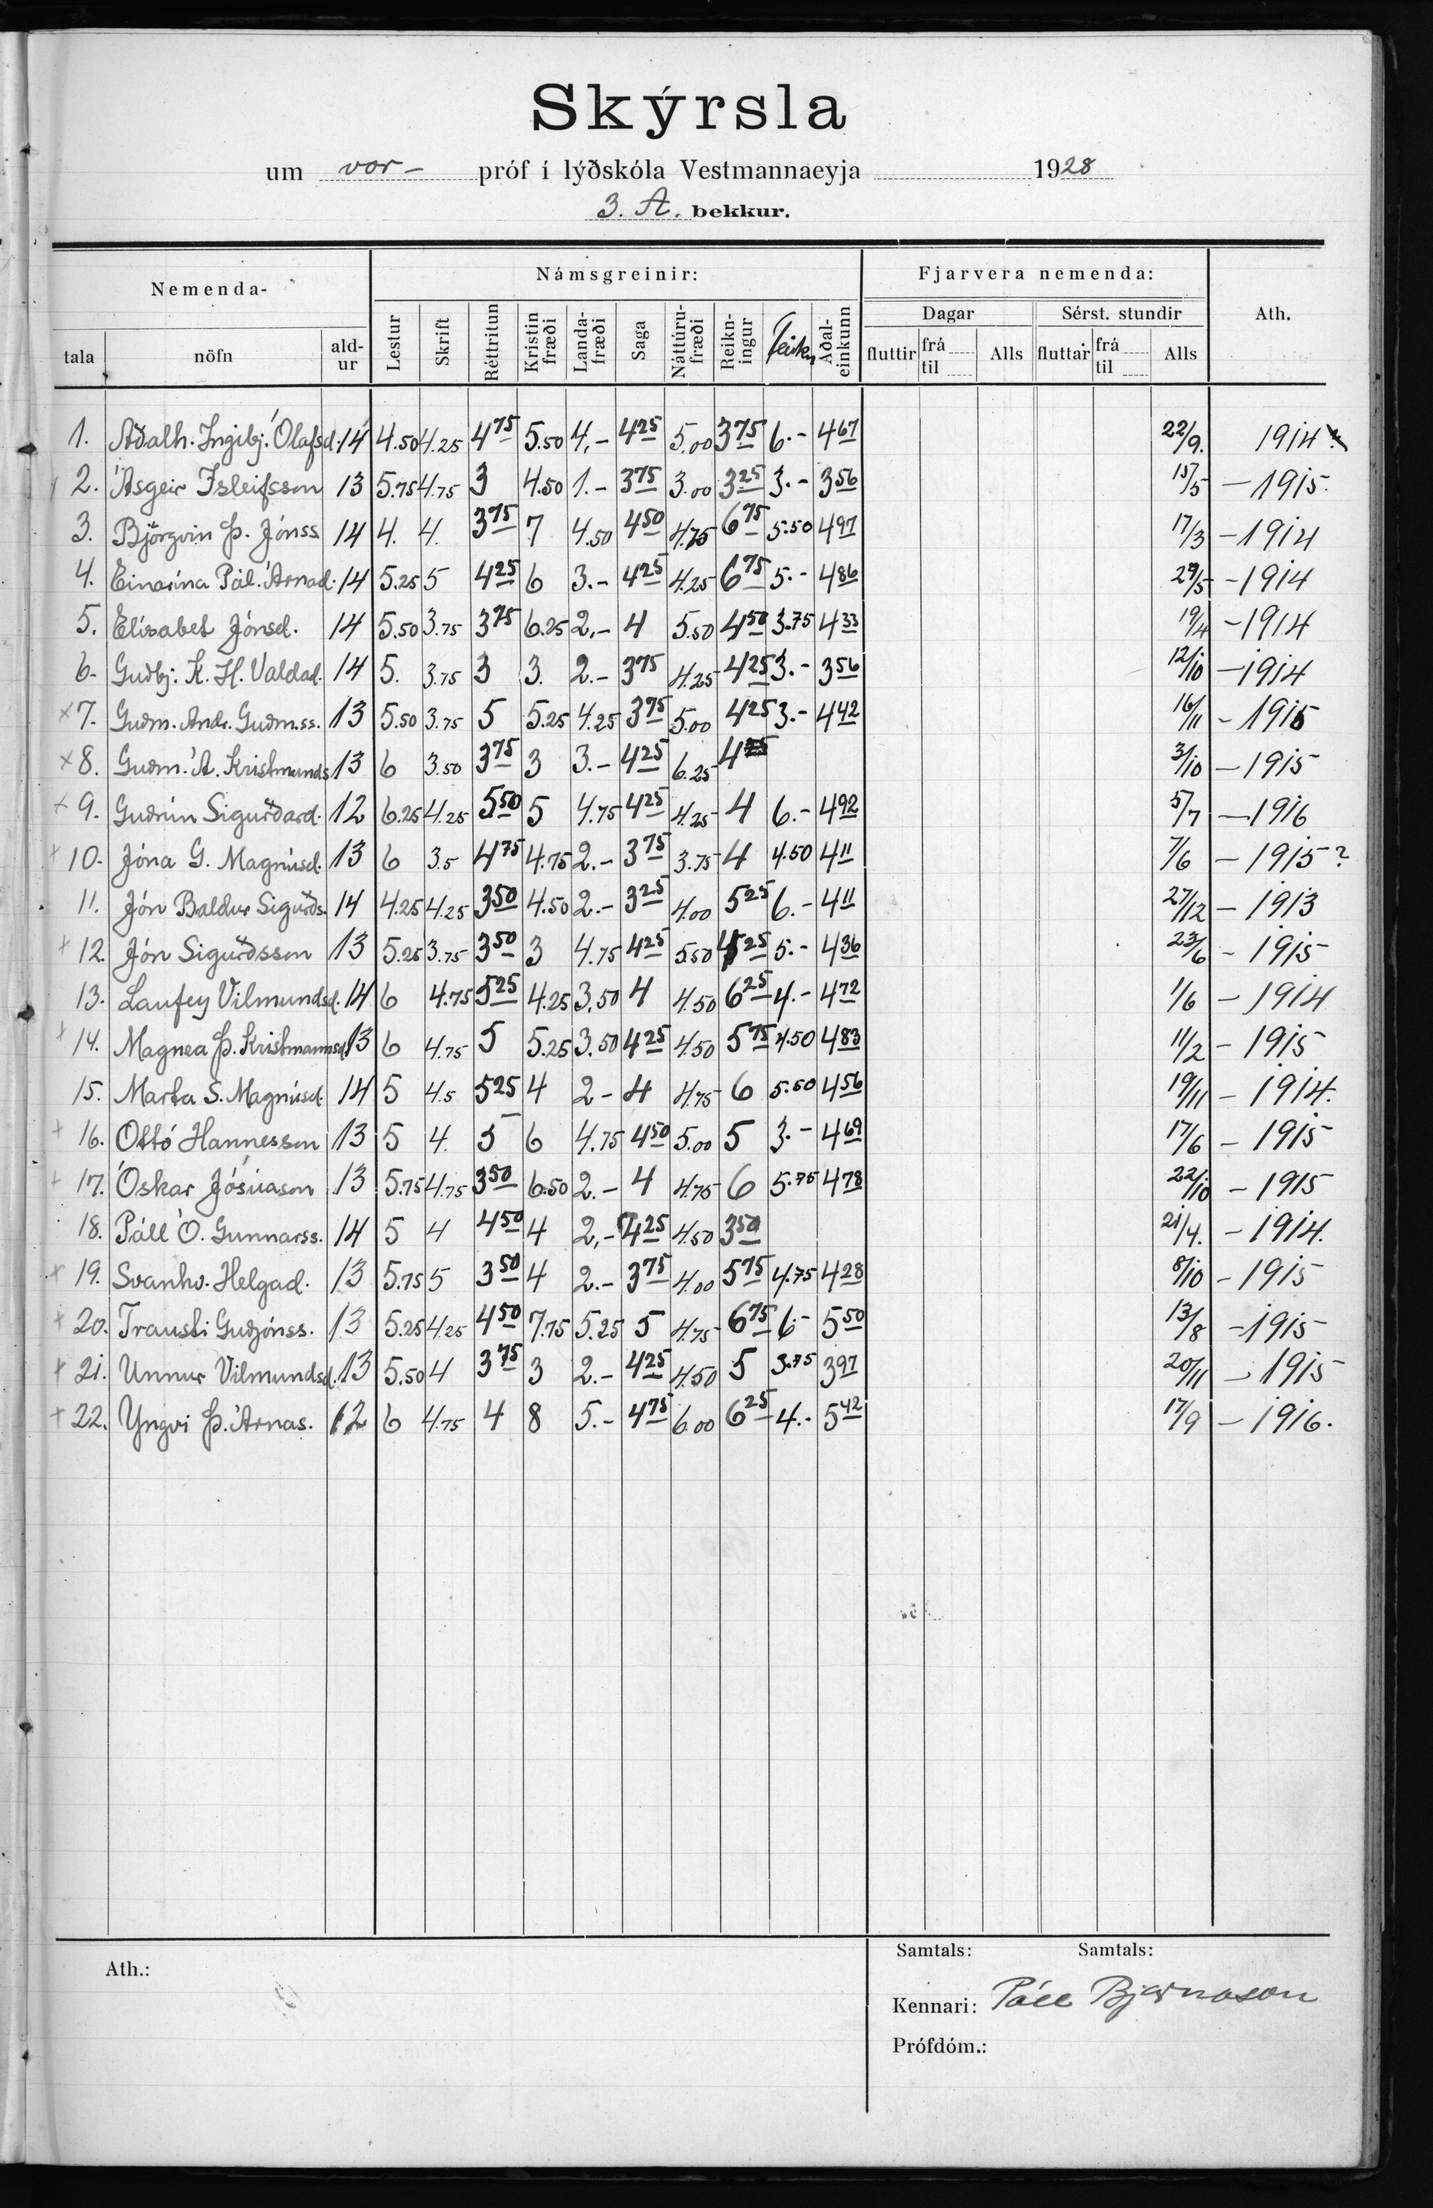 Skýrsla
um vor- próf í lýðskóla Vestmannaeyja 1928
3. A. bekkur.
Nemenda- Námsgreinir: Fjarvera nemenda: Ath.
Dagar Sérst. stundir
tala nöfn ald-ur Lestur Skrift Réttritun Kristin fræði Landa-fræði Saga Náttúru-fræði Reikn-ingur Teikn Aðal-einkunn fluttir frá til Alls fluttar frá til Alls
1. Aðalh. Ingibj. Ólafsd. 14 4.50 4.25 4 75 5.50 4,- 4 25 5.00 3 75 6.- 4 67 22/9. 1914
2. Ásgeir Ísleifsson 13 5.75 4.75 3 4.50 1.- 3 75 3.00 3 25 3.- 3 56 15/5 - 1915.
3. Björgvin Þ. Jónss. 14 4. 4. 3 75 7 4.50 4 50 4.75 6 75 5.50 4 97 17/3 - 1914
4. Einarína Pál. Árnad. 14 5.25 5 4 25 6 3.- 4 25 4.25 6 75 5.- 4 86 29/5 - 1914
5. Elísabet Jónsd. 14 5.50 3.75 3 75 6.25 2,- 4 5.50 4 50 3.75 4 33 19/4 - 1914
6. Guðbj. K. H. Valdad. 14 5. 3.75 3 3. 2.- 3 75 4.25 4 25 3.- 3 56 12/10 - 1914
×7. Guðm. Andr. Guðm.ss. 13 5.50 3.75 5 5.25 4.25 3 75 5.00 4 25 3.- 4 42 16/11 - 1915
×8. Guðm. Á. Kristmunds 13 6 3.50 3 75 3 3.- 4 25 6.25 4 3/10 - 1915
× 9. Guðrún Sigurðard. 12 6.25 4.25 5 50 5 4.75 4 25 4.25 4 6.- 4 92 5/7 - 1916
+ 10. Jóna G. Magnúsd. 13 6 3.5 4 75 4.75 2.- 3 75 3.75 4 4.50 4 11 7/6 - 1915?
11. Jón Baldur Sigurðs. 14 4.25 4.25 3 50 4.50 2.- 3 25 4.00 5 25 6.- 4 11 27/12 - 1913
+ 12. Jón Sigurðsson 13 5.25 3.75 3 50 3 4.75 4 25 5.50 4 25 5.- 4 36 23/6 - 1915
13. Laufey Vilmundsd. 14 6 4.75 5 25 4.25 3.50 4 4.50 6 25 4.- 4 72 1/6 - 1914
+ 14. Magnea Þ. Kristmannsd. 13 6 4.75 5 5.25 3.50 4 25 4.50 5 75 4.50 4 83 11/2 - 1915
15. Marta S. Magnúsd. 14 5 4.5 5 25 4 2- 4 4.75 6 5.50 4 56 19/11 - 1914.
+ 16. Ottó Hannesson 13 5 4. 5 6 4.75 4 50 5.00 5 3.- 4 69 17/6 - 1915
+ 17. Óskar Jósúason 13 5.75 4.75 3 50 6.50 2.- 4 4.75 6 5.75 4 78 22/10 - 1915
18. Páll Ó. Gunnarss. 14 5 4 4 50 4 2,- 4 25 4.50 3 50 21/4. - 1914.
+ 19. Svanhv. Helgad. 13 5.75 5 3 50 4 2.- 3 75 4.00 5 75 4.75 4 28 8/10 - 1915
+ 20. Trausti Guðjónss. 13 5.25 4.25 4 50 7.75 5.25 5 4.75 6 75 6- 5 50 13/8 - 1915
+ 21. Unnur Vilmundsd. 13 5.50 4 3 75 3 2.- 4 25 4.50 5 3.75 3 97 20/11 - 1915
+ 22. Yngvi Þ. Árnas. 12 6 4.75 4 8 5.- 4 75 6.00 6 25 4.- 5 42 17/9 - 1916.
Samtals: Samtals:
Ath.:
Kennari: Páll Bjarnason
Prófdóm.: